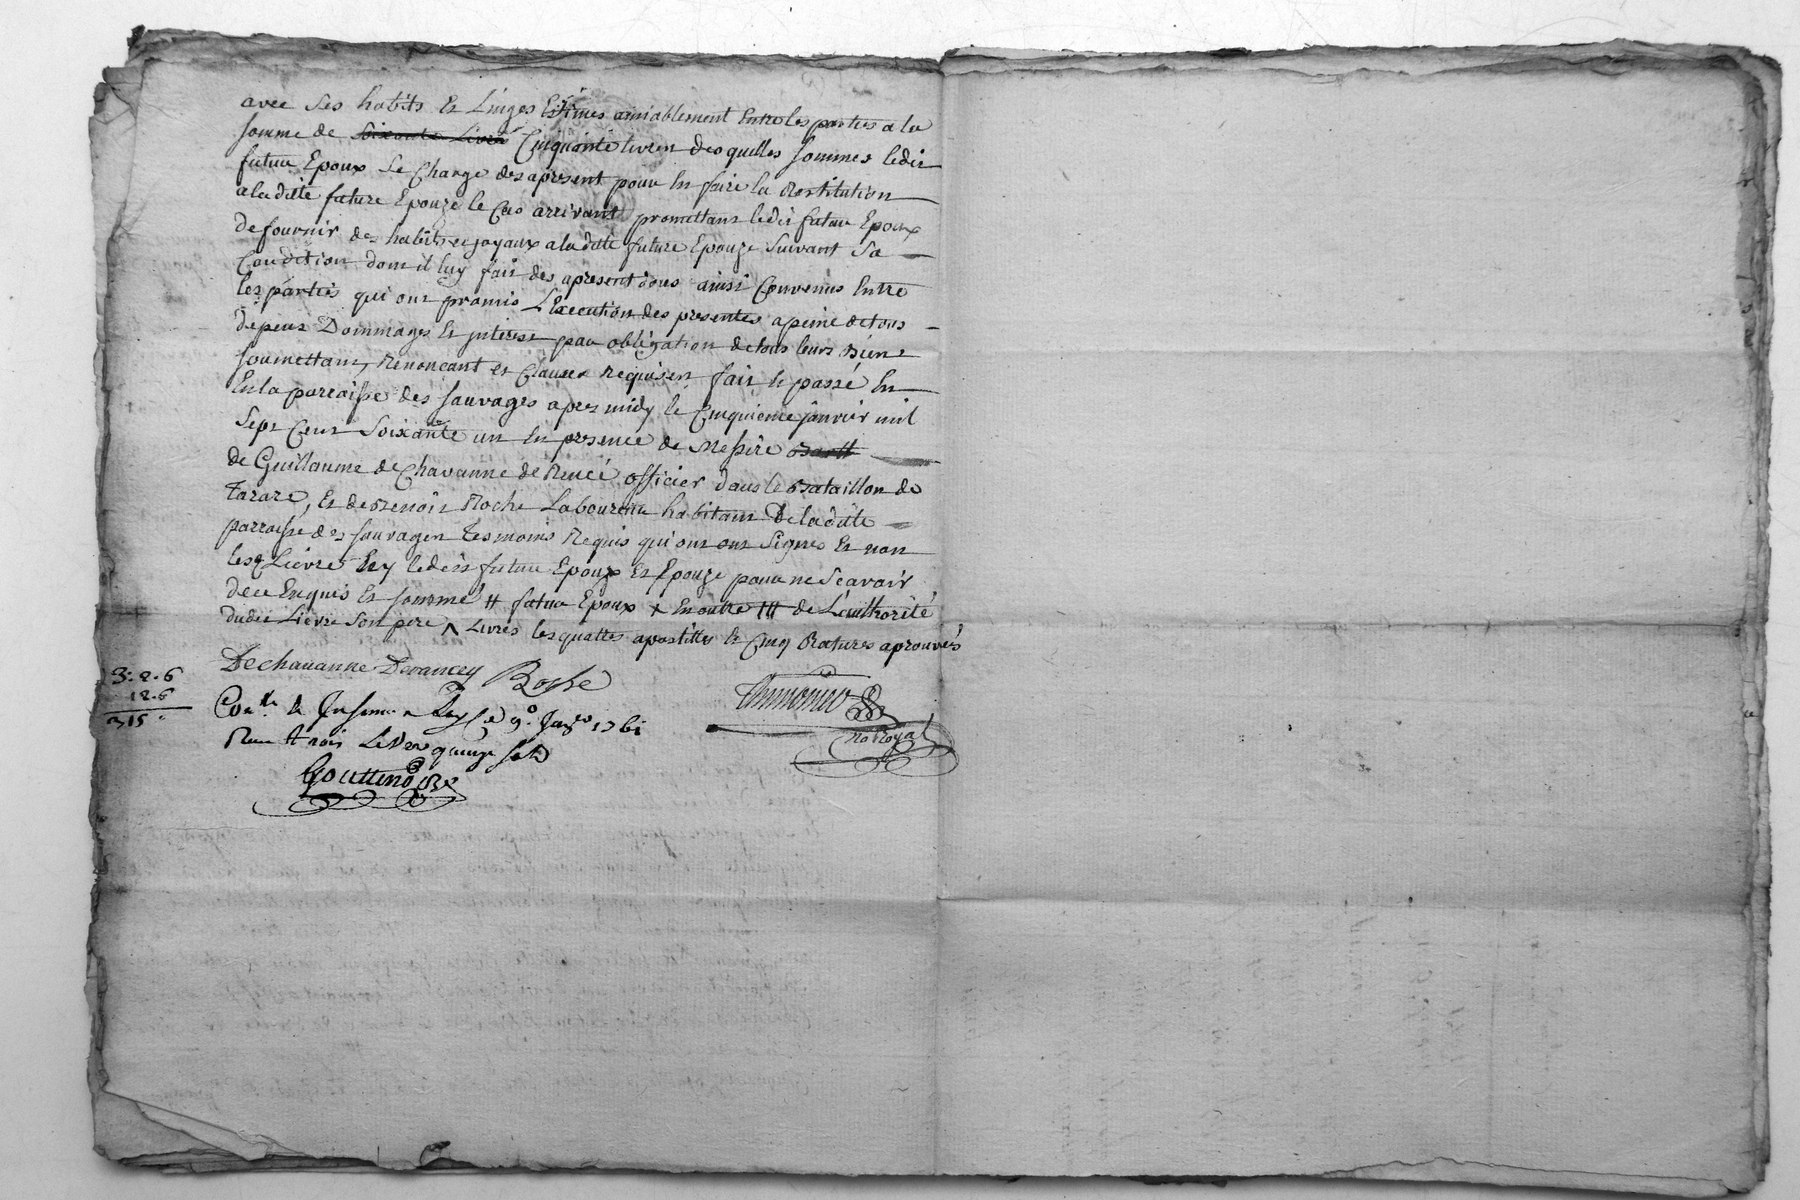 avec ses habits et Linges Estimés amiablement Entre les parties a la
somme de soixante Livres Cinquante livres desquelles sommes ledit
futur Epoux se Charge des apresent pour En faire la Restitution
a la ditte future Epouze le Cas arrivant promettant ledit futur Epoux
de fournir des habits et joyaux a la ditte future Epouze Suivant Sa
Condition dont il luy fait des apresent dons ainsi Convenus Entre
les parties qui ont promis L'Execution des presentes a peine de tous
depens Dommages et interest par obligation de tous leurs Biens
soumettant, Renoncant et Clauses Requises, fait et passé En
En la parroisse des sauvages apres midy le Cinquieme janvier mil
Sept Cent Soixante un En presence de Messire
de Guillaume de Chavanne de Rencé officier dans le Bataillon de
Tarare, Et de Benoit Roche Laboureur habitant de la ditte
parroisse des sauvages Tesmoins Requis qui ont ont Signés Et non
Lievre Ny ledit futur Epoux Et Epouze pour ne Scavoir
de ce Enquis Et sommé # futur Epoux + En outre ### de L'authorité
dudit Lievre Son pere ^ Livres les quattes apostilles et Cinq Ratures aprouvés
Dechauanne Derancey Roche
3. 2. 6
12. 6
3 15
Con.lle & Insinué a le 9.e 1761
Reçu trois Livres quinze sols
No Royal